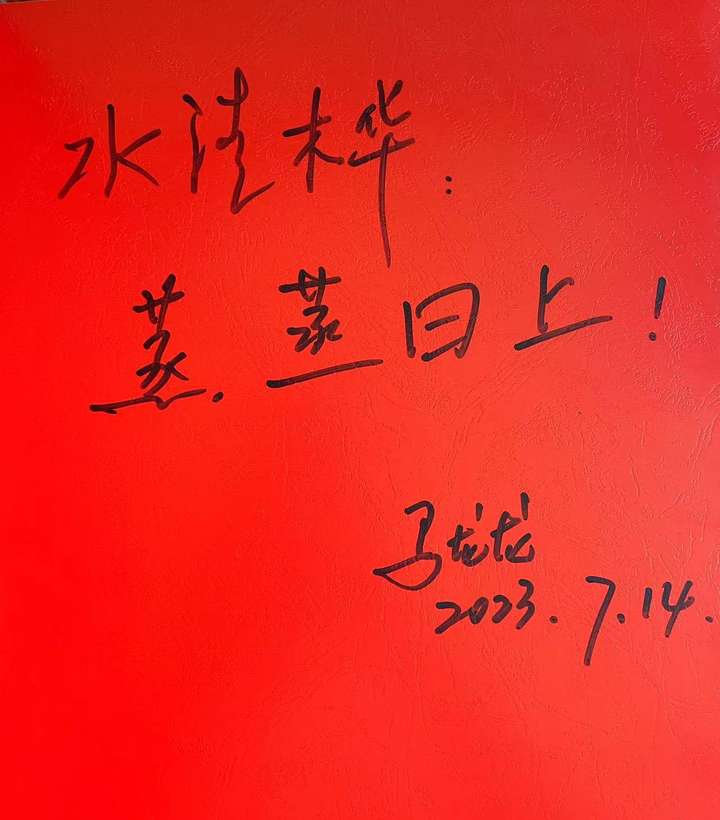 水清木华：
蒸蒸日上！
马龙龙
2023.7.14.